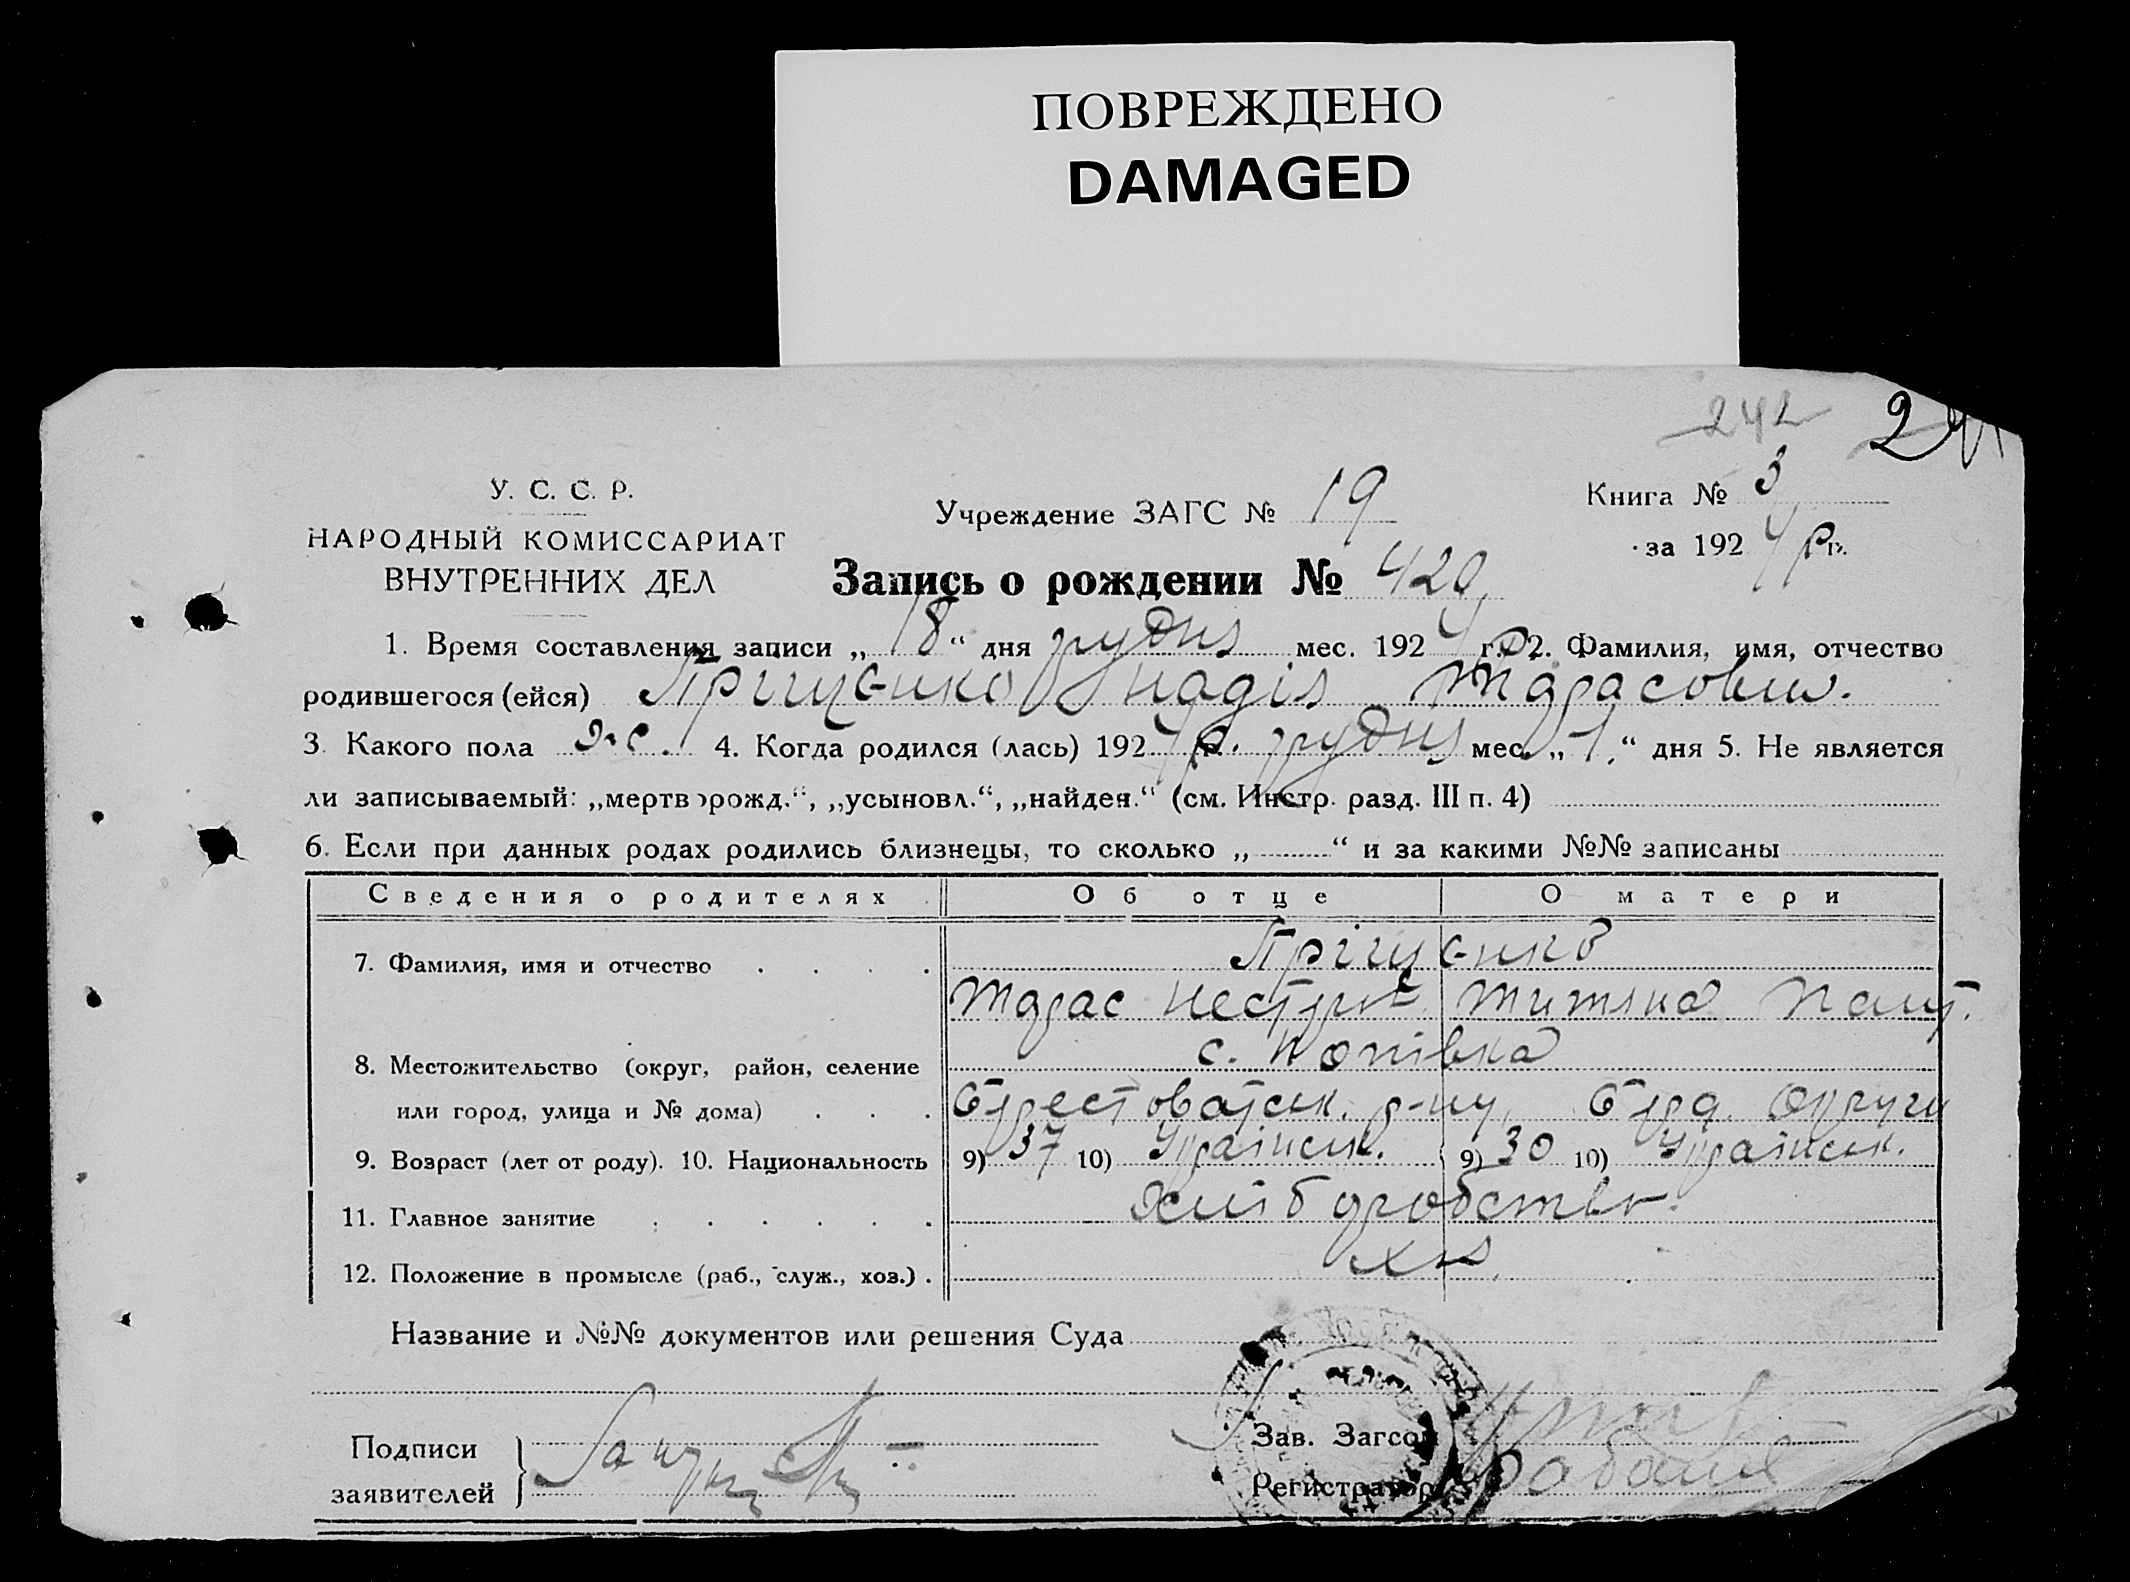 ПОВРЕЖДЕНО
DAMAGED
242
У. С. С. Р.
НАРОДНЫЙ КОМИССАРИАТ
ВНУТРЕННИХ ДЕЛ
Учреждение ЗАГС № 19
Книга № 3
за 1924 р г.
Запись о рождении № 420
1. Время составления записи „18“ дня грудня мес. 1924 г. р 2. Фамилия, имя, отчество
родившегося (ейся) Пріщенко Надія Тарасовн.
3. Какого пола ж. 4. Когда родился (лась) 1924 р. грудня мес. „1“ дня 5. Не является
ли записываемый: „мертворожд.“, „усыновл.“, „найден.“ (см. Инстр. разд. III п. 4)
6. Если при данных родах родились близнецы, то сколько „ “ и за какими №№ записаны
Сведения о родителях Об отце О матери
7. Фамилия, имя и отчество Пріщенко
Тарас Нестер.
8. Местожительство (округ, район, селение с. Попівка
или город, улица и № дома) Берестоватськ. р-ну, Берд. Округи
9. Возраст (лет от роду). 10. Национальность 9) 37 10) Україньск. 9) 30 10) Україньск.
11. Главное занятие Хліборобство
12. Положение в промысле (раб., служ., хоз.)
Название и №№ документов или решения Суда
Подписи
заявителей
Зав. Загсом
Регистратор